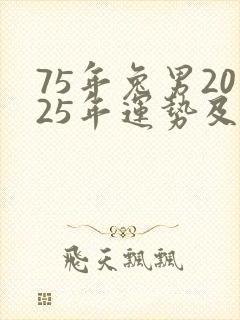 75年兔男20
25年運勢及
飛天飄飄